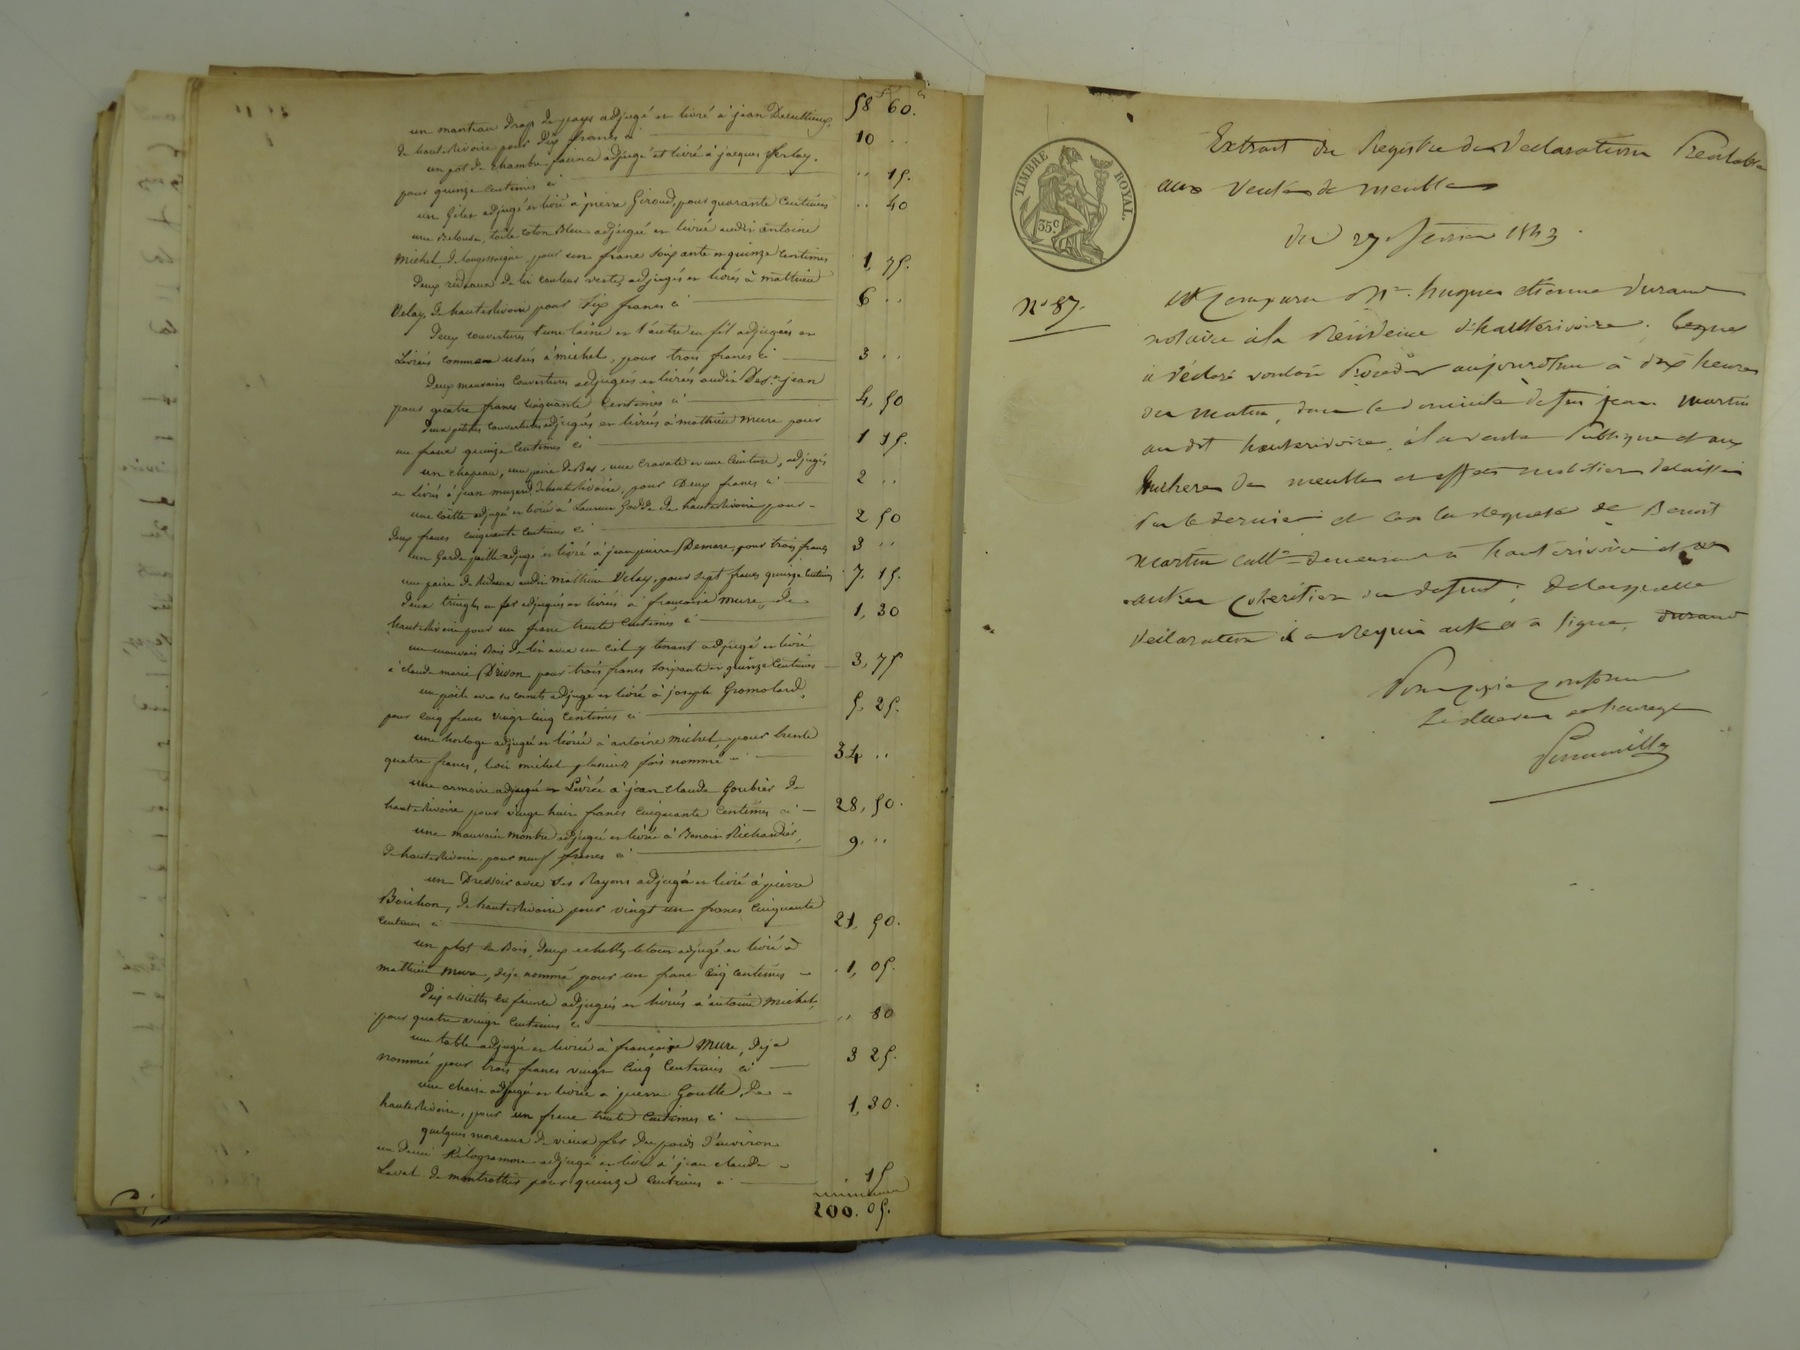 58 60.
un manteau drap de pays adjugé et livré à jean
de hauterivoire pour dix francs ci 10 ..
un pot de chambre faience adjugé et livré à jacques
pour quinze centimes ci .. 15.
un Gilet adjugé et livré à pierre Giroud, pour quarante centimes .. 40
une Belouse, toile coton Bleu adjugée et livrée audit antoine
Michel, de pour un franc soixante et quinze centimes 1, 75.
deux rideaux de lit couleur verte, adjugés et livrés à mathieu
Velay, de hauterivoire pour six francs ci 6 ..
deux couvertures l'une laine et l'autre en fil adjugées et
Livrées comme usées à michel, pour trois francs ci 3 ..
deux mauvaises couvertures adjugées et livrées audit jean
pour quatre francs cinquante centimes ci 4, 50
deux petites couvertures adjugées et livrées à mathieu mure pour
un franc quinze centimes ci 1 15.
un chapeau, une paire de Bas, une cravate et une ceinture, adjugés
et livrés à jean de hauterivoire, pour Deux francs ci 2 ..
une adjugée et livrée à Laurent de hauterivoire pour
deux francs cinquante centimes ci 2 50
un Garde paille adjugé et livré à jean pierre pour trois francs 3 ..
une paire de rideaux audit mathieu Velay, pour sept francs quinze centimes 7. 15.
deux tringles en fer adjugées et livrées à françoise mure, de
hauterivoire pour un franc trente centimes ci 1, 30
un mauvais Bois de lit avec un ciel y tenant adjugé et livré
à claude marie pour trois francs soixante et quinze centimes 3, 75
un poële avec ses cornets adjugé et livré à joseph Gromolard,
pour cinq francs vingt cinq centimes ci 5, 25.
une horloge adjugée et livrée à antoine michel, pour trente
quatre francs, ledit michel plusieurs fois nommé ci 34 ..
une armoire adjugée et Livrée à jean claude Goubier de
hauterivoire pour vingt huit francs cinquante centimes ci 28, 50.
une mauvaise montre adjugée et livrée à Benoit
de hauterivoire, pour neuf francs ci 9. ..
un Dressoir avec ses Rayons adjugé et livré à pierre
de hauterivoire pour vingt un francs cinquante
centimes ci 21, 50.
un plot en Bois, deux echelles le tout adjugé et livré à
mathieu mure, déjà nommé pour un franc cinq centimes 1, 05.
Dix assiettes en faience adjugées et livrées à antoine michel,
pour quatre vingt centimes ci .. 80
une table adjugée et livrée à françoise mure, déja
nommée pour trois francs vingt cinq centimes ci 3 25.
une chaise adjugée et livrée à pierre Goutte, de
hauterivoire, pour un franc trente centimes ci 1, 30.
quelques morceaux de vieux fer du poids d'environ
un demi Kilogramme adjugé et livré à jean claude
Laval de montrottier pour quinze centimes ci . 15
200. 05.
TIMBRE ROYAL.
35c
Extrait du Registre des Déclarations Préalables
aux ventes de meubles
du 27 février 1843.
N° 87.
Est Comparu Me. hugues etienne durand
notaire à la Résidence d'hauterivoire, lequel
a déclaré vouloir Procéder aujourd'hui à dix heures
du matin, dans le domicile de feu jean martin
audit hauterivoire, à la vente Publique et aux
Enchères des meubles et effets mobiliers délaissés
Par le dernier et à la requete de Benoit
martin cultr demeurant à hauterivoire et des
autres cohéritiers du défunt; de laquelle
déclaration il a Requis acte et a signé, durand
Pour copie conforme